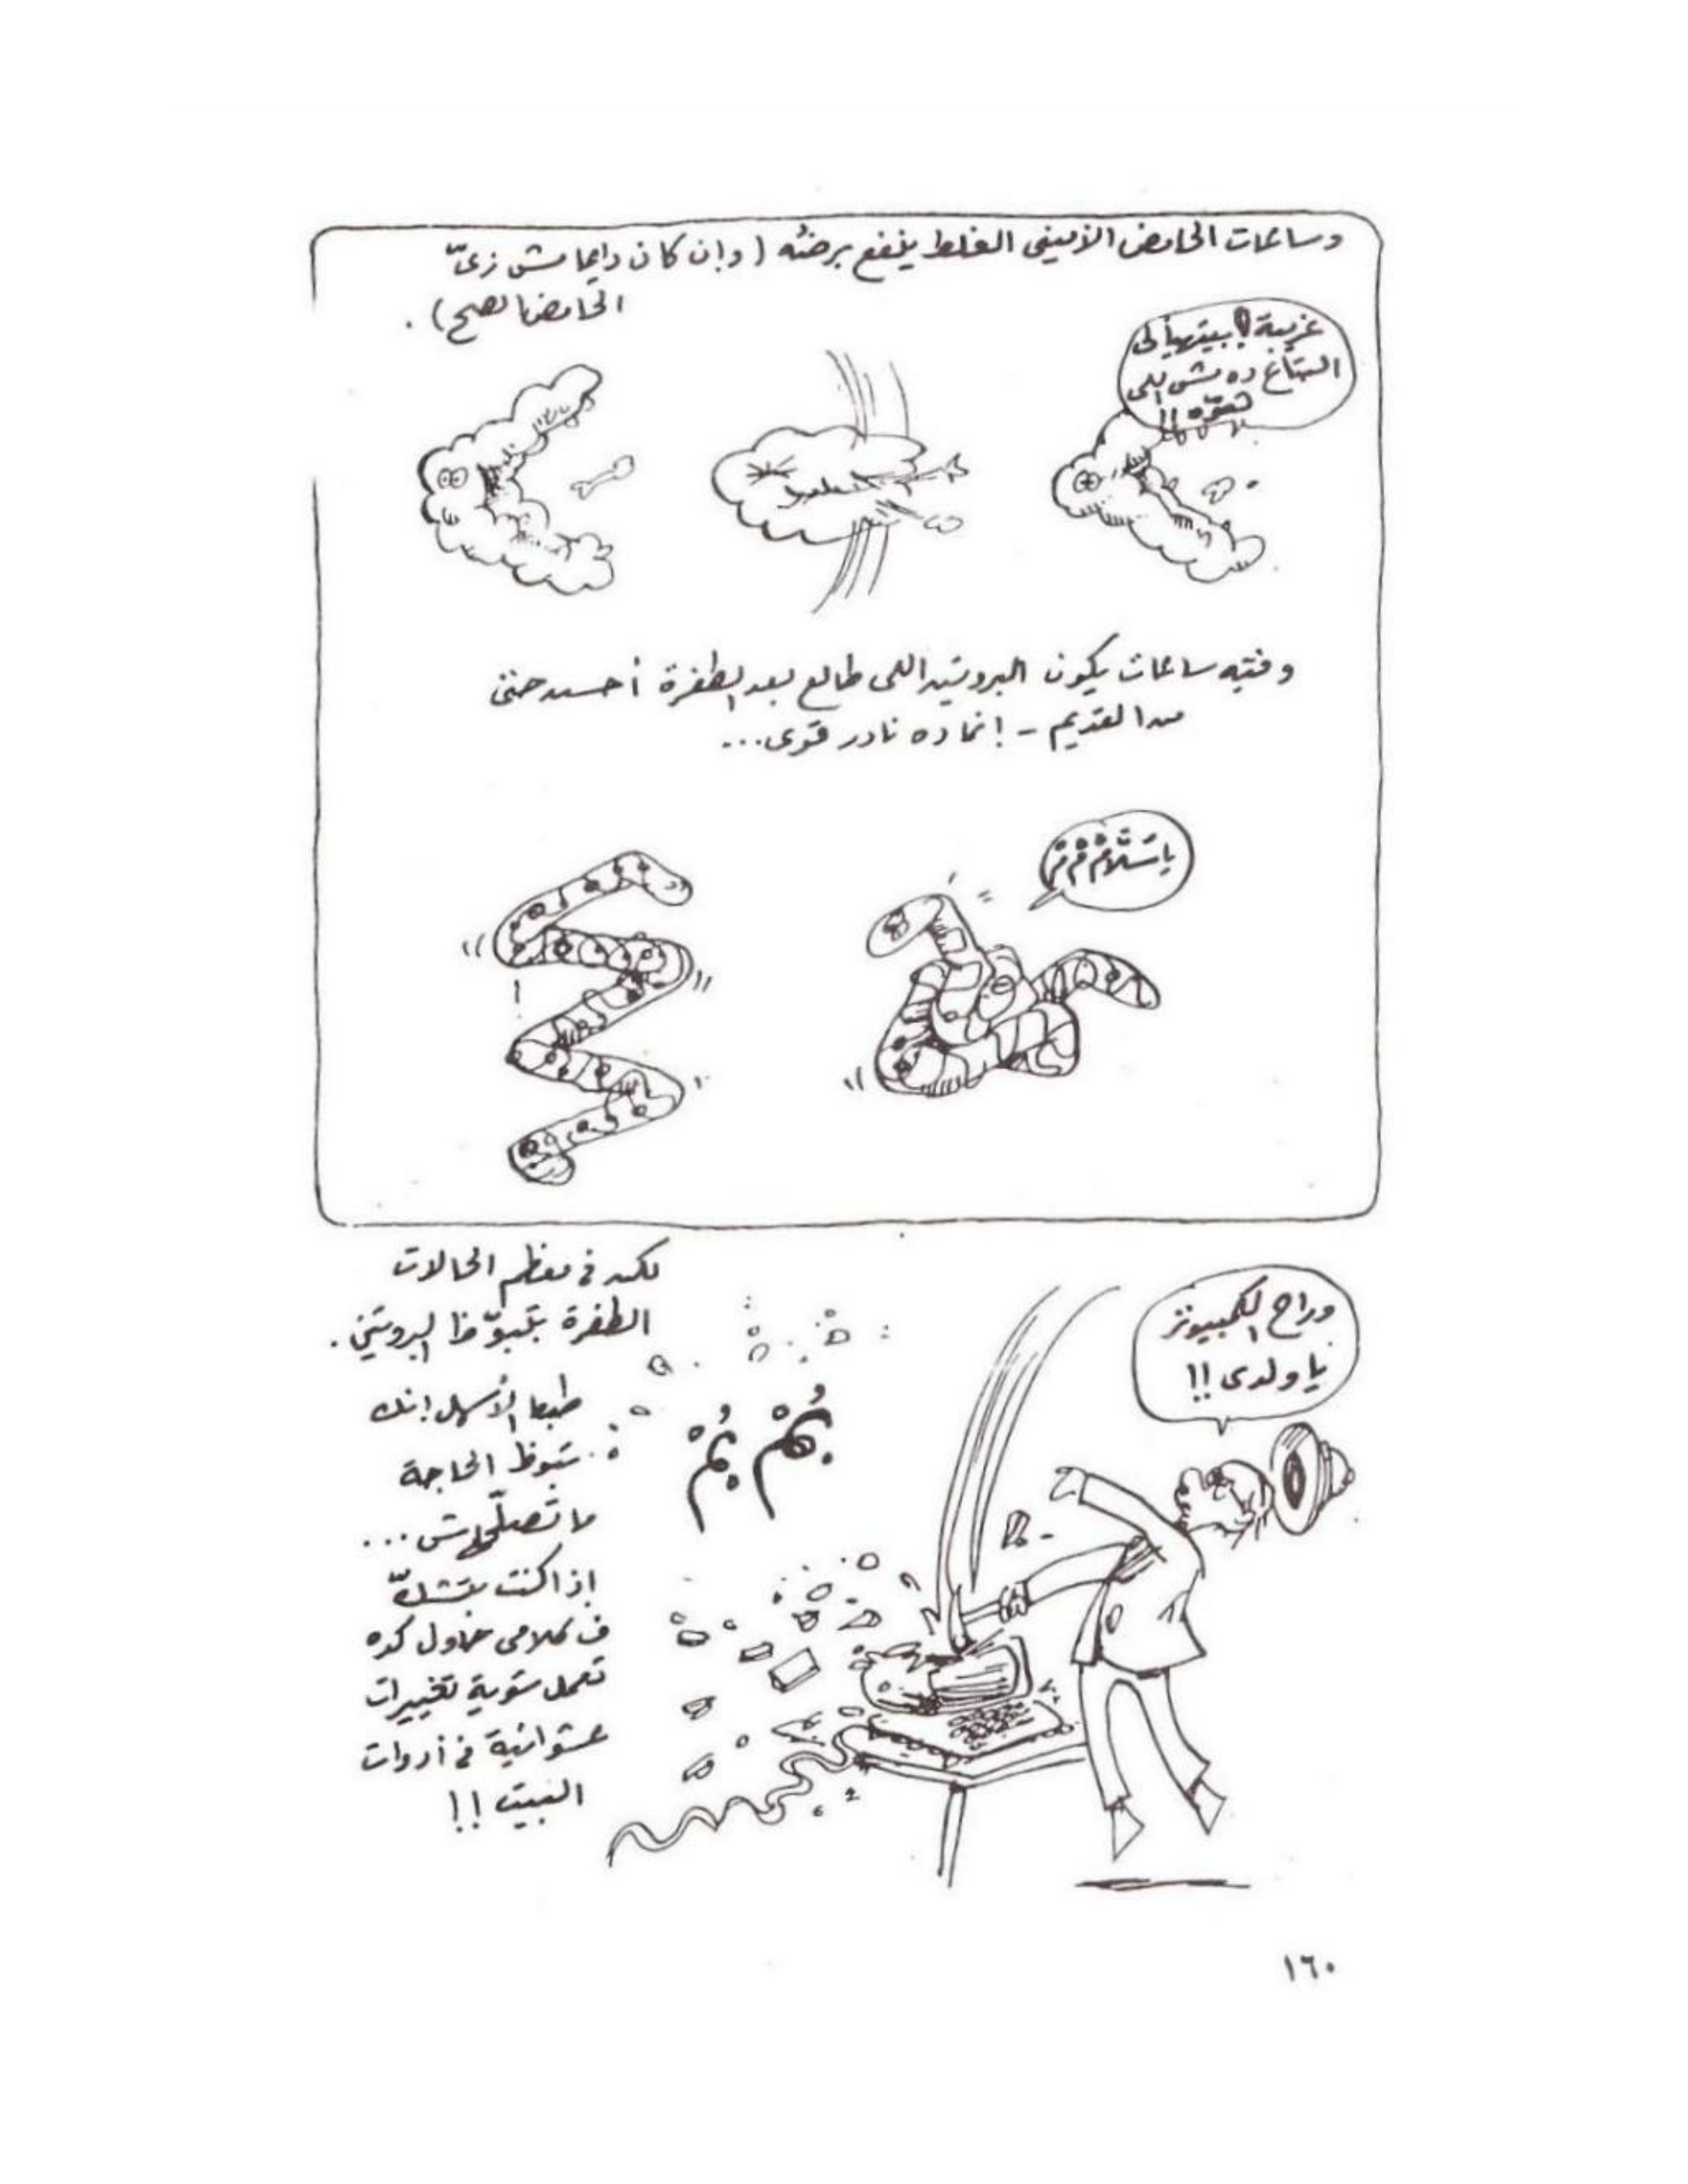 وساعات الحامض الأمينى الغلط ينفع برضُه (وإن كان دايما مش زىّ
الحامض الصح).
غريبة! بيتهيألى
البتاع ده مش اللى
وفيه ساعات يكون البروتين اللى طالع بعد الطفرة أحسن حتى
من القديم - إنما ده نادر قوى...
يا سَلامْ مْ مْ
لكن فى معظم الحالات
الطفرة بتبوّظ البروتين.
طبعا الأسهل إنك
تبوظ الحاجة
ما تصلّحهاش...
إذا كنت بتشكّ
ف كلامى حاول كده
تعمل شوية تغييرات
عشوائية فى أدوات
البيت!!
وراح الكمبيوتر
يا ولدى!!
بُمْ بُمْ
١٦٠